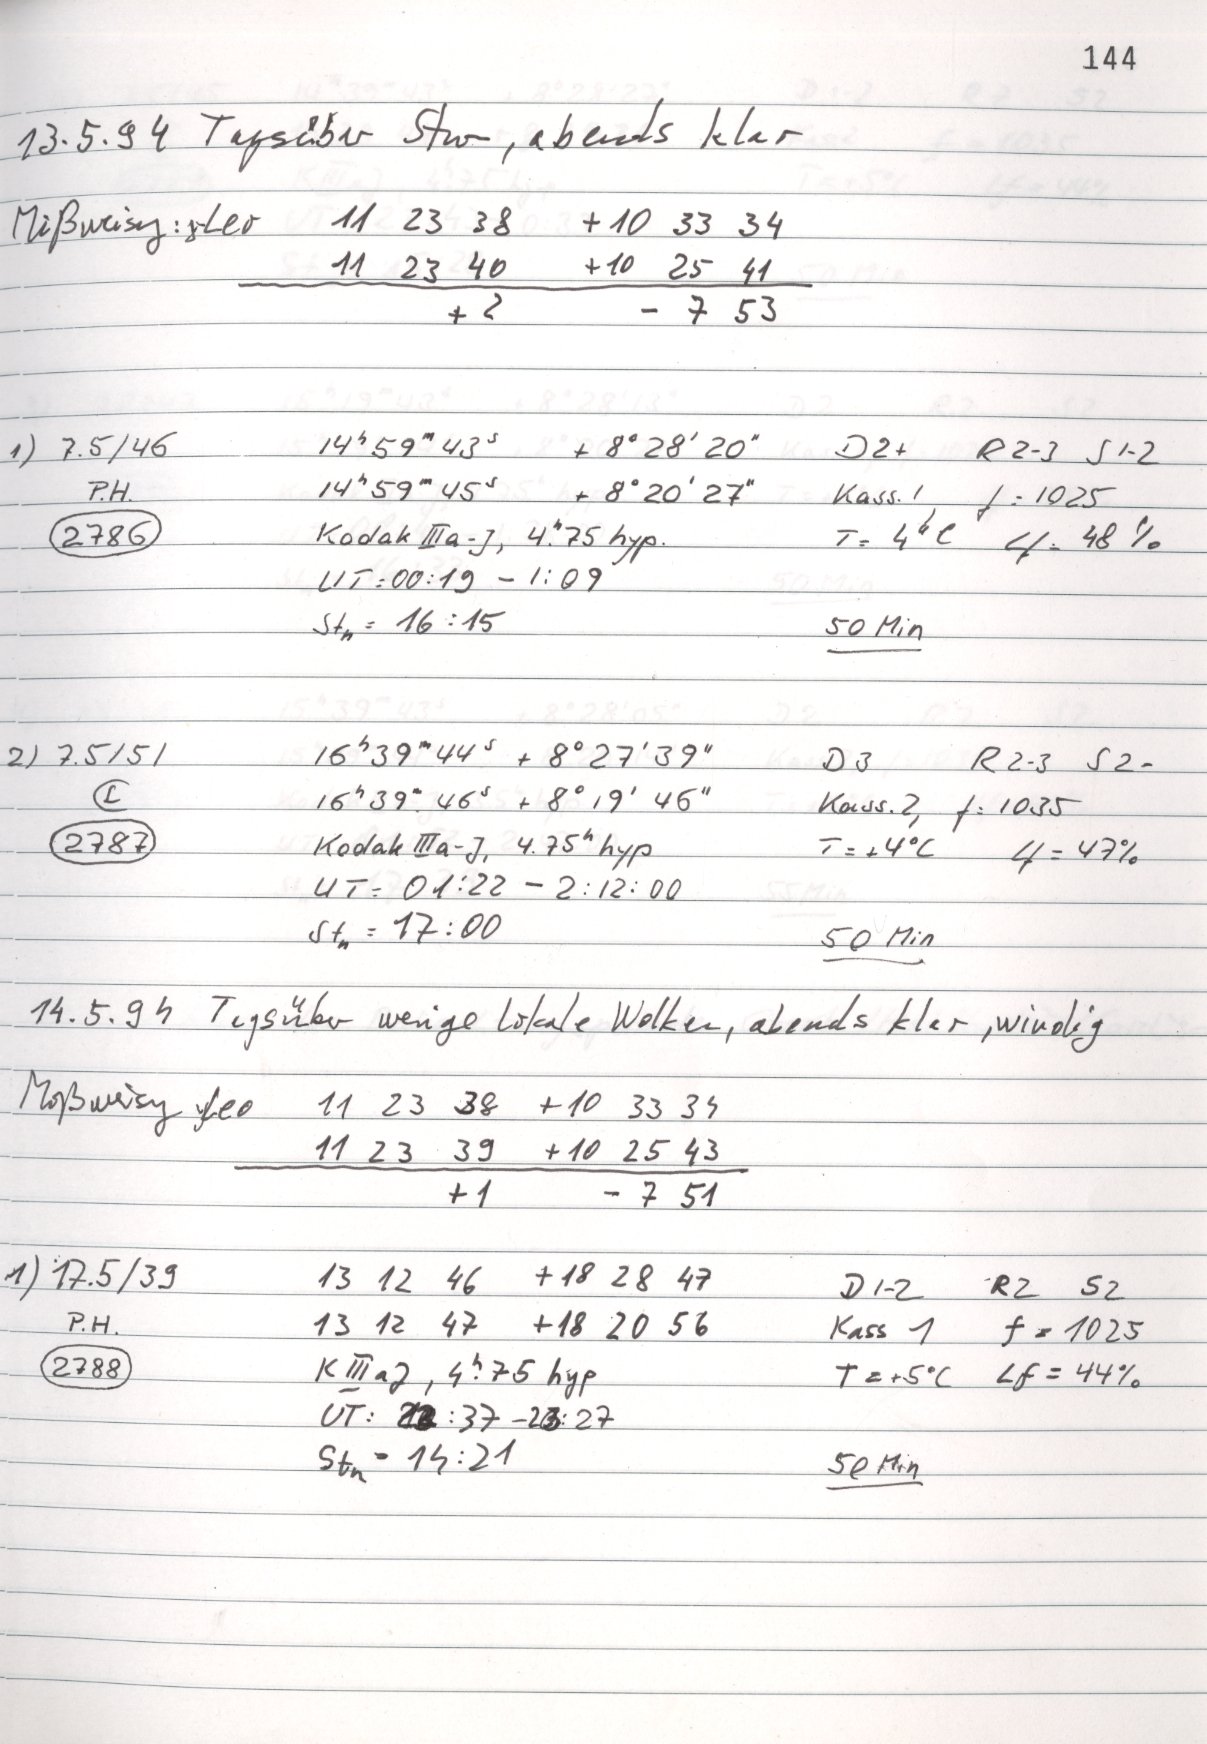 144
13.5.94 Tagsüber Stw, abends klar
Mißweisg: Leo 11 23 38 +10 33 34
11 23 40 +10 25 41
+ 2 - 7 53
1) 7.5/46 14ʰ59ᵐ43ˢ + 8°28'20" D2+ R2-3 S1-2
P.H. 14ʰ59ᵐ45ˢ + 8°20'27" Kass. 1, f = 1025
2786 Kodak IIIa-J, 4ʰ.75 hyp. T = 4°C Lf = 48%
UT = 00:19 - 1:09
Stn = 16:15 50 Min
2) 7.5/51 16ʰ39ᵐ44ˢ + 8°27'39" D3 R2-3 S2-
I 16ʰ39ᵐ46ˢ + 8°19'46" Kass. 2, f = 1035
2787 Kodak IIIa-J, 4.75ʰ hyp T = +4°C Lf = 47%
UT = 01:22 - 2:12:00
Stn = 17:00 50 Min
14.5.94 Tagsüber wenige lokale Wolken, abends klar, windig
Mißweisg Leo 11 23 38 +10 33 34
11 23 39 +10 25 43
+1 - 7 51
1) 17.5/39 13 12 46 +18 28 47 D1-2 R2 S2
P.H. 13 12 47 +18 20 56 Kass 1 f = 1025
2788 K IIIaJ, 4ʰ.75 hyp T = +5°C Lf = 44%
UT: :37 - 23:27
Stn = 14:21 50 Min